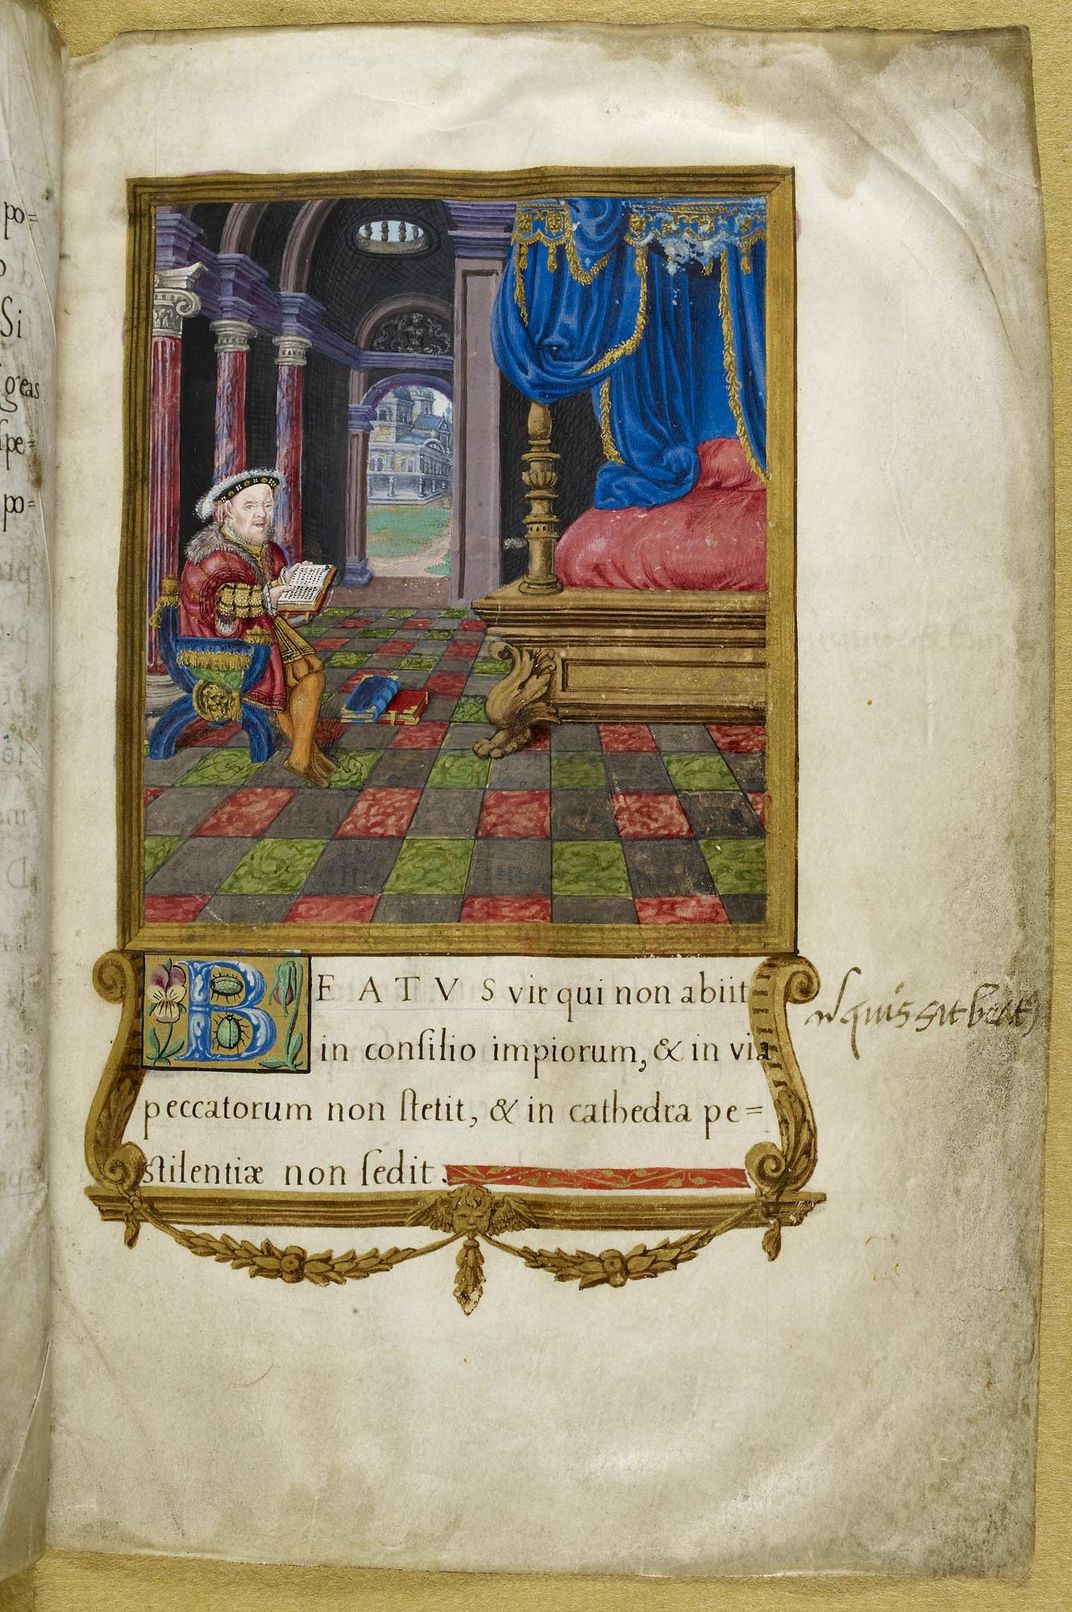 3
po=
o
Si
geas
spe=
po=
BEATVS vir qui non abiit
in consilio impiorum, & in via
peccatorum non stetit, & in cathedra pe=
stilentiæ non sedit.
quis sit beat